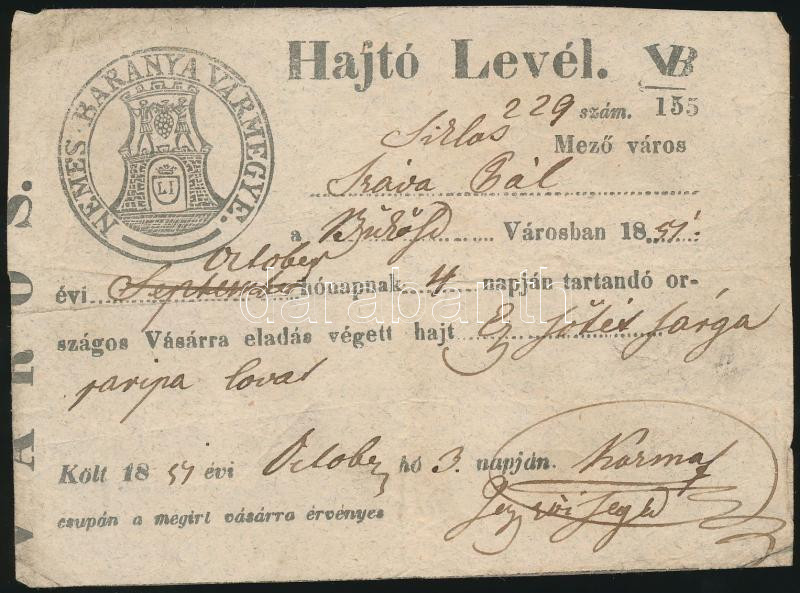 NEMES BARANYA VÁRMEGYE.
LI
Hajtó Levél. VB
229 szám. 155
Siklos Mező város
Száva Pál
a Bükösd Városban 1851.
October
évi September hónapnak 4 napján tartandó or-
szágos Vásárra eladás végett hajt Egy sötét sárga
paripa lovat
Költ 1851 évi October hó 3. napján. Kormas
csupán a megirt vásárra érvényes
VÁROS.
darabanth